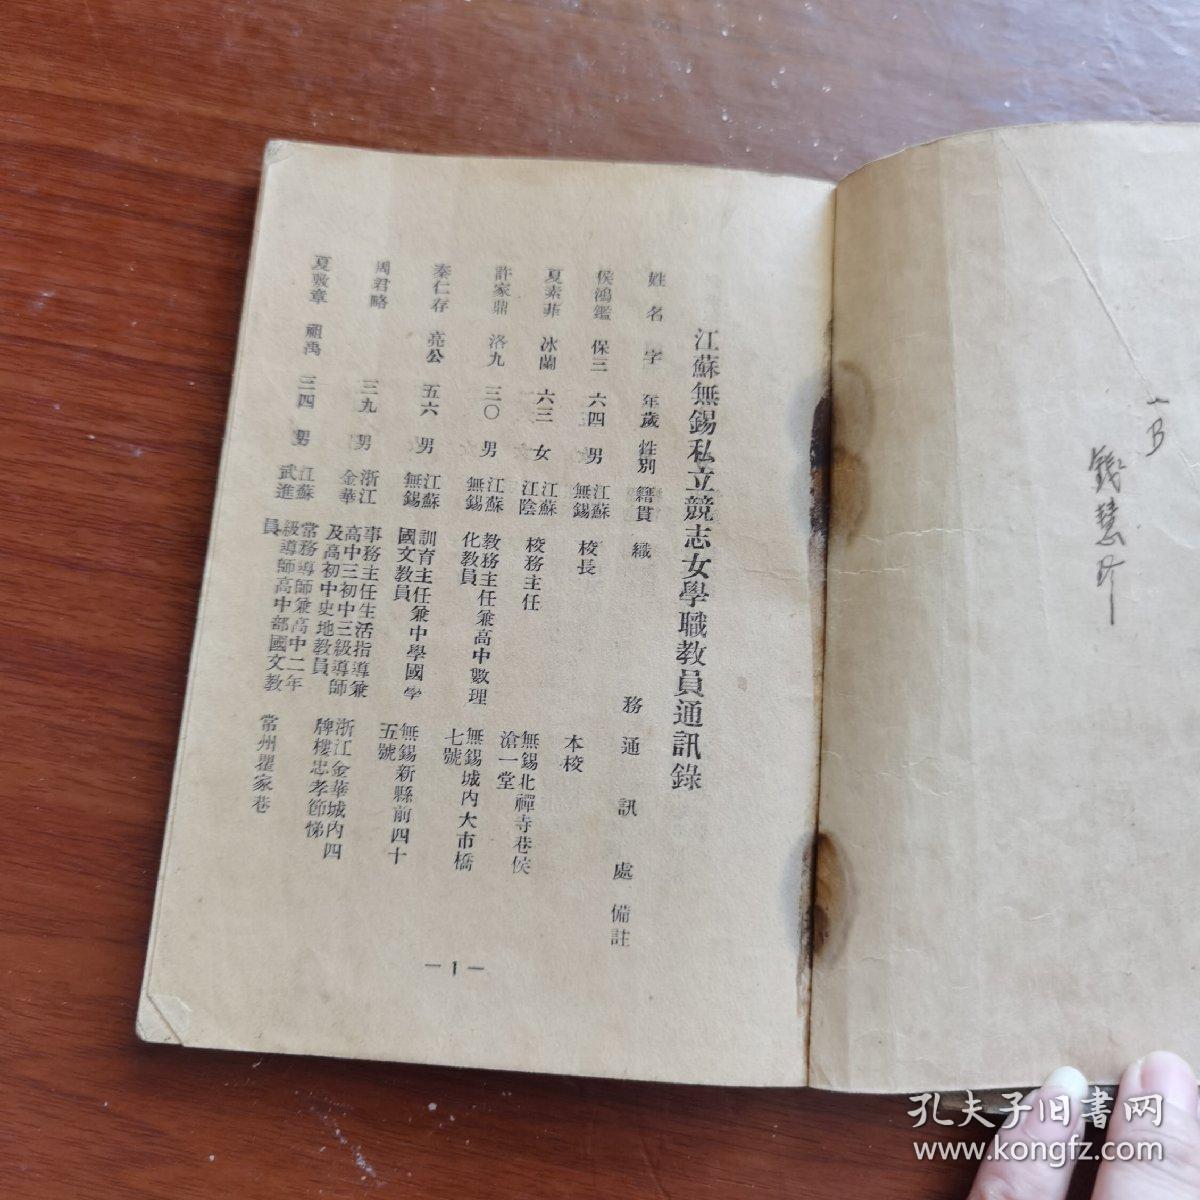 江蘇無錫私立競志女學職教員通訊錄
姓名 字 年歲 性別 籍貫 職務 通訊處 備註
侯鴻鑑 保三 六四 男 江蘇無錫 校長 本校
夏素菲 冰蘭 六三 女 江蘇江陰 校務主任 無錫北禪寺巷侯
滄一堂
許家鼎 洛九 三〇 男 江蘇無錫 教務主任兼高中數理
化教員 無錫城內大市橋
七號
秦仁存 亮公 五六 男 江蘇無錫 訓育主任兼中學國學
國文教員 無錫新縣前四十
五號
周君略 三九 男 浙江金華 事務主任生活指導兼
高中三初中三級導師
及高初中史地教員 浙江金華城內四
牌樓忠孝節悌
夏敷章 祖禹 三四 男 江蘇武進 常務導師兼高中二年
級導師高中部國文教
員 常州瞿家巷
—1—
一B
錢慧珍
孔夫子旧书网
www.kongfz.com